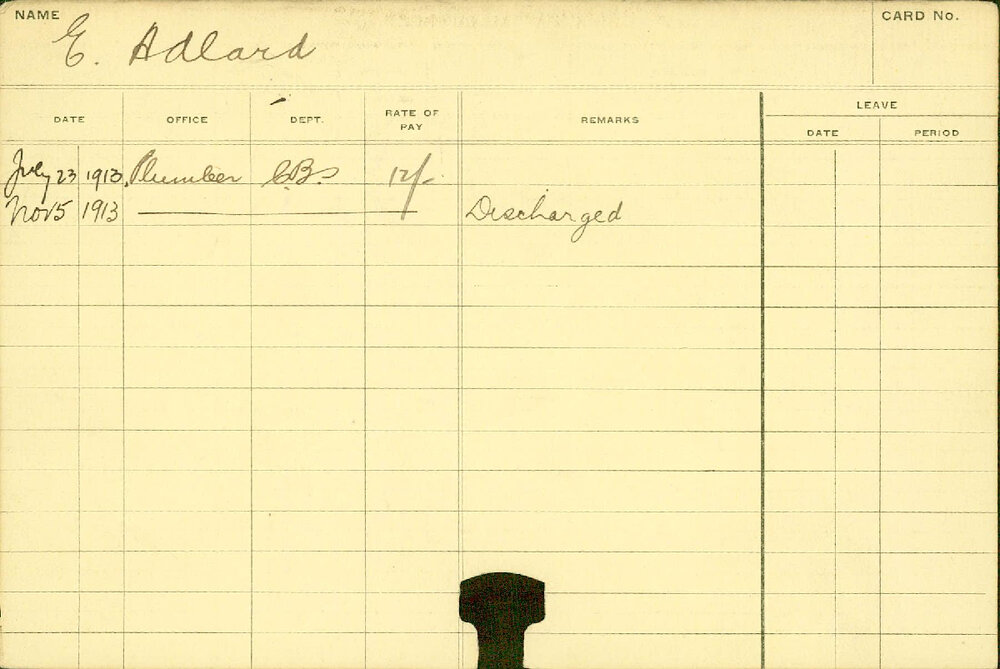 NAME E. Adlard CARD No.
LEAVE
DATE OFFICE DEPT. RATE OF PAY REMARKS DATE PERIOD
July 23 1913. Plumber C.B.s 12/-
Nov 5 1913 Discharged